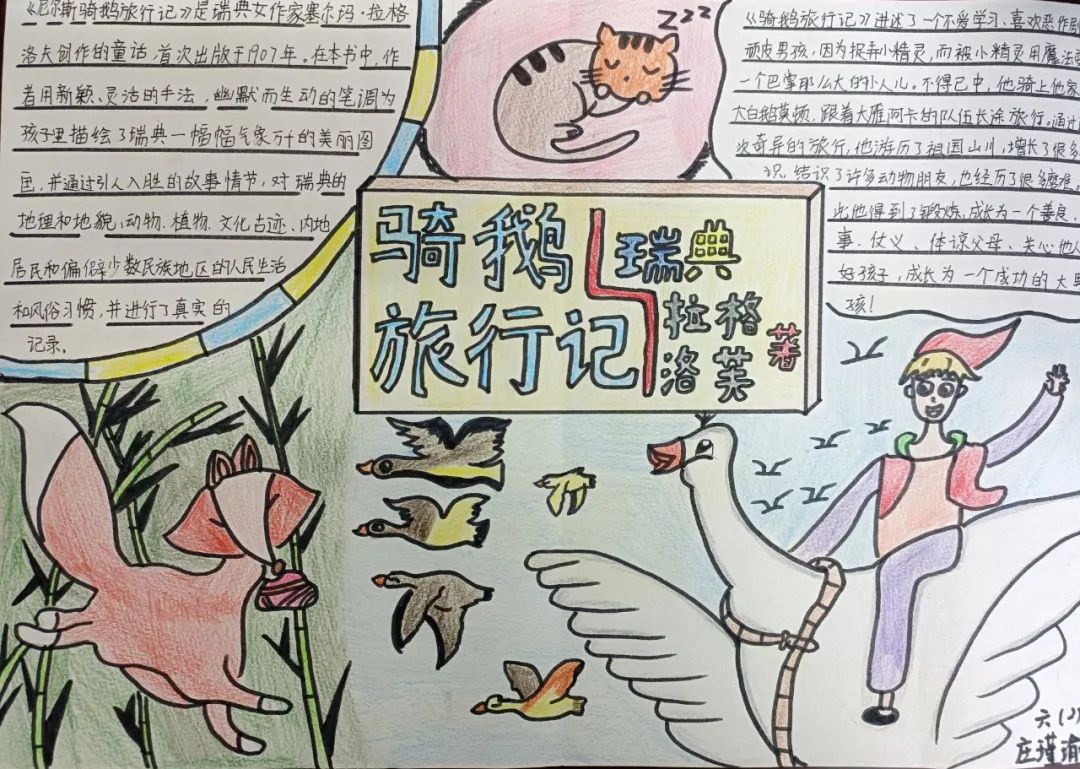 《尼尔斯骑鹅旅行记》是瑞典女作家塞尔玛·拉格
洛夫创作的童话，首次出版于1907年。在本书中，作
者用新颖、灵活的手法，幽默而生动的笔调为
孩子里描绘了瑞典一幅幅气象万千的美丽图
画，并通过引人入胜的故事情节，对瑞典的
地理和地貌、动物、植物、文化古迹、内地
居民和偏僻少数民族地区的人民生活
和风俗习惯，并进行了真实的
记录。
zzz
《骑鹅旅行记》讲述了一个不爱学习、喜欢恶作剧
顽皮男孩，因为捉弄小精灵，而被小精灵用魔法
一个巴掌那么大的小人儿。不得已中，他骑上他家
大白鹅莫顿，跟着大雁阿卡的队伍长途旅行。通过
次奇异的旅行，他游历了祖国山川，增长了很多
识，结识了许多动物朋友，也经历了很多磨难，
此他得到了锻炼，成长为一个善良、
事、仗义、体谅父母、关心他人
好孩子，成长为一个成功的大男
孩！
骑鹅
旅行记
瑞典
拉格
洛芙
著
六(2)
庄瑾渝